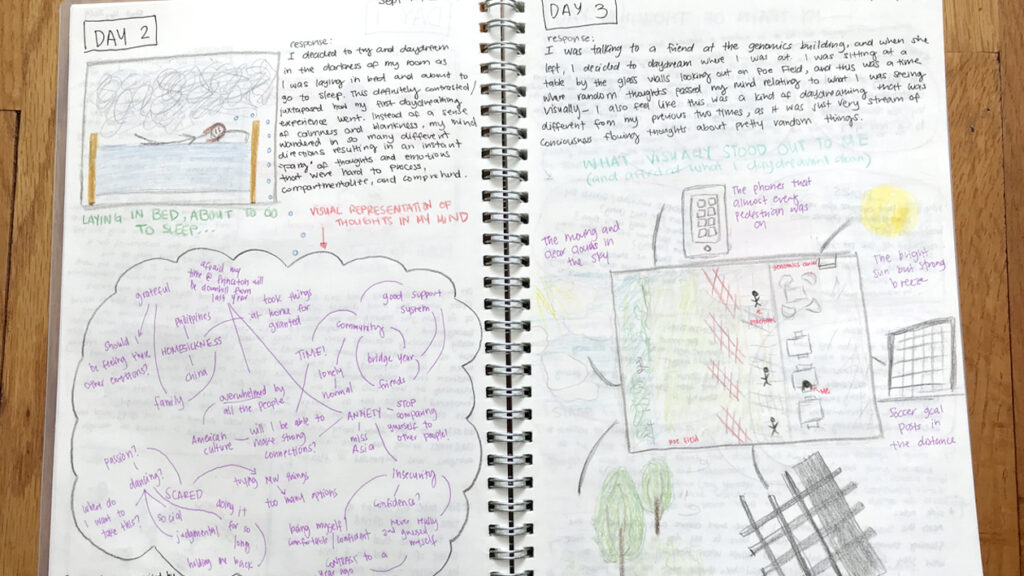 DAY 2
Sept
response:
I decided to try and daydream
in the darkness of my room as
I was laying in bed and about to
go to sleep. This definitely contrasted/
juxtaposed how my first daydreaming
experience went. Instead of a sense
of calmness and blankness, my mind
wandered in so many different
directions resulting in an instant
"party" of thoughts and emotions
that were hard to process,
compartmentalize, and comprehend.
LAYING IN BED, ABOUT TO GO
TO SLEEP...
VISUAL REPRESENTATION OF
THOUGHTS IN MY MIND
afraid my
time @ Princeton will
be dampened from
last year
grateful
took things
at home for
granted
good support
system
Philippines
Community
Should I
be feeling these
other emotions?
HOMESICKNESS
TIME!
bridge year
china
lonely
friends
normal
family
overwhelmed by
all the people
ANXIETY
STOP
comparing
yourself to
other people!
American
culture
will I be able to
make strong
connections?
miss
Asia
passion?
dancing?
trying new things
Insecurity
SCARED
too many options
Confidence?
when do
I want to
take this?
social
doing it
for so
long
judgmental
being myself/
comfortable/
confident
holding me back
CONTRAST to a
year ago
DAY 3
response:
I was talking to a friend at the genomics building, and when she
left, I decided to daydream where I was at. I was sitting at a
table by the glass walls looking out on Poe Field, and this was a time
were random thoughts passed my mind relating to what I was seeing
visually— I also feel like this was a kind of daydreaming that was
different from my previous two times, as it was just very stream of
conciousness flowing thoughts about pretty random things.
WHAT VISUALLY STOOD OUT TO ME
(and affected what I daydreamt about)
The phones that
almost every
pedestrian was
on
The moving and
clear clouds in
the sky
The bright
sun but strong
breeze
genomics
pedestrians
me
poe field
Soccer goal
posts in
the distance